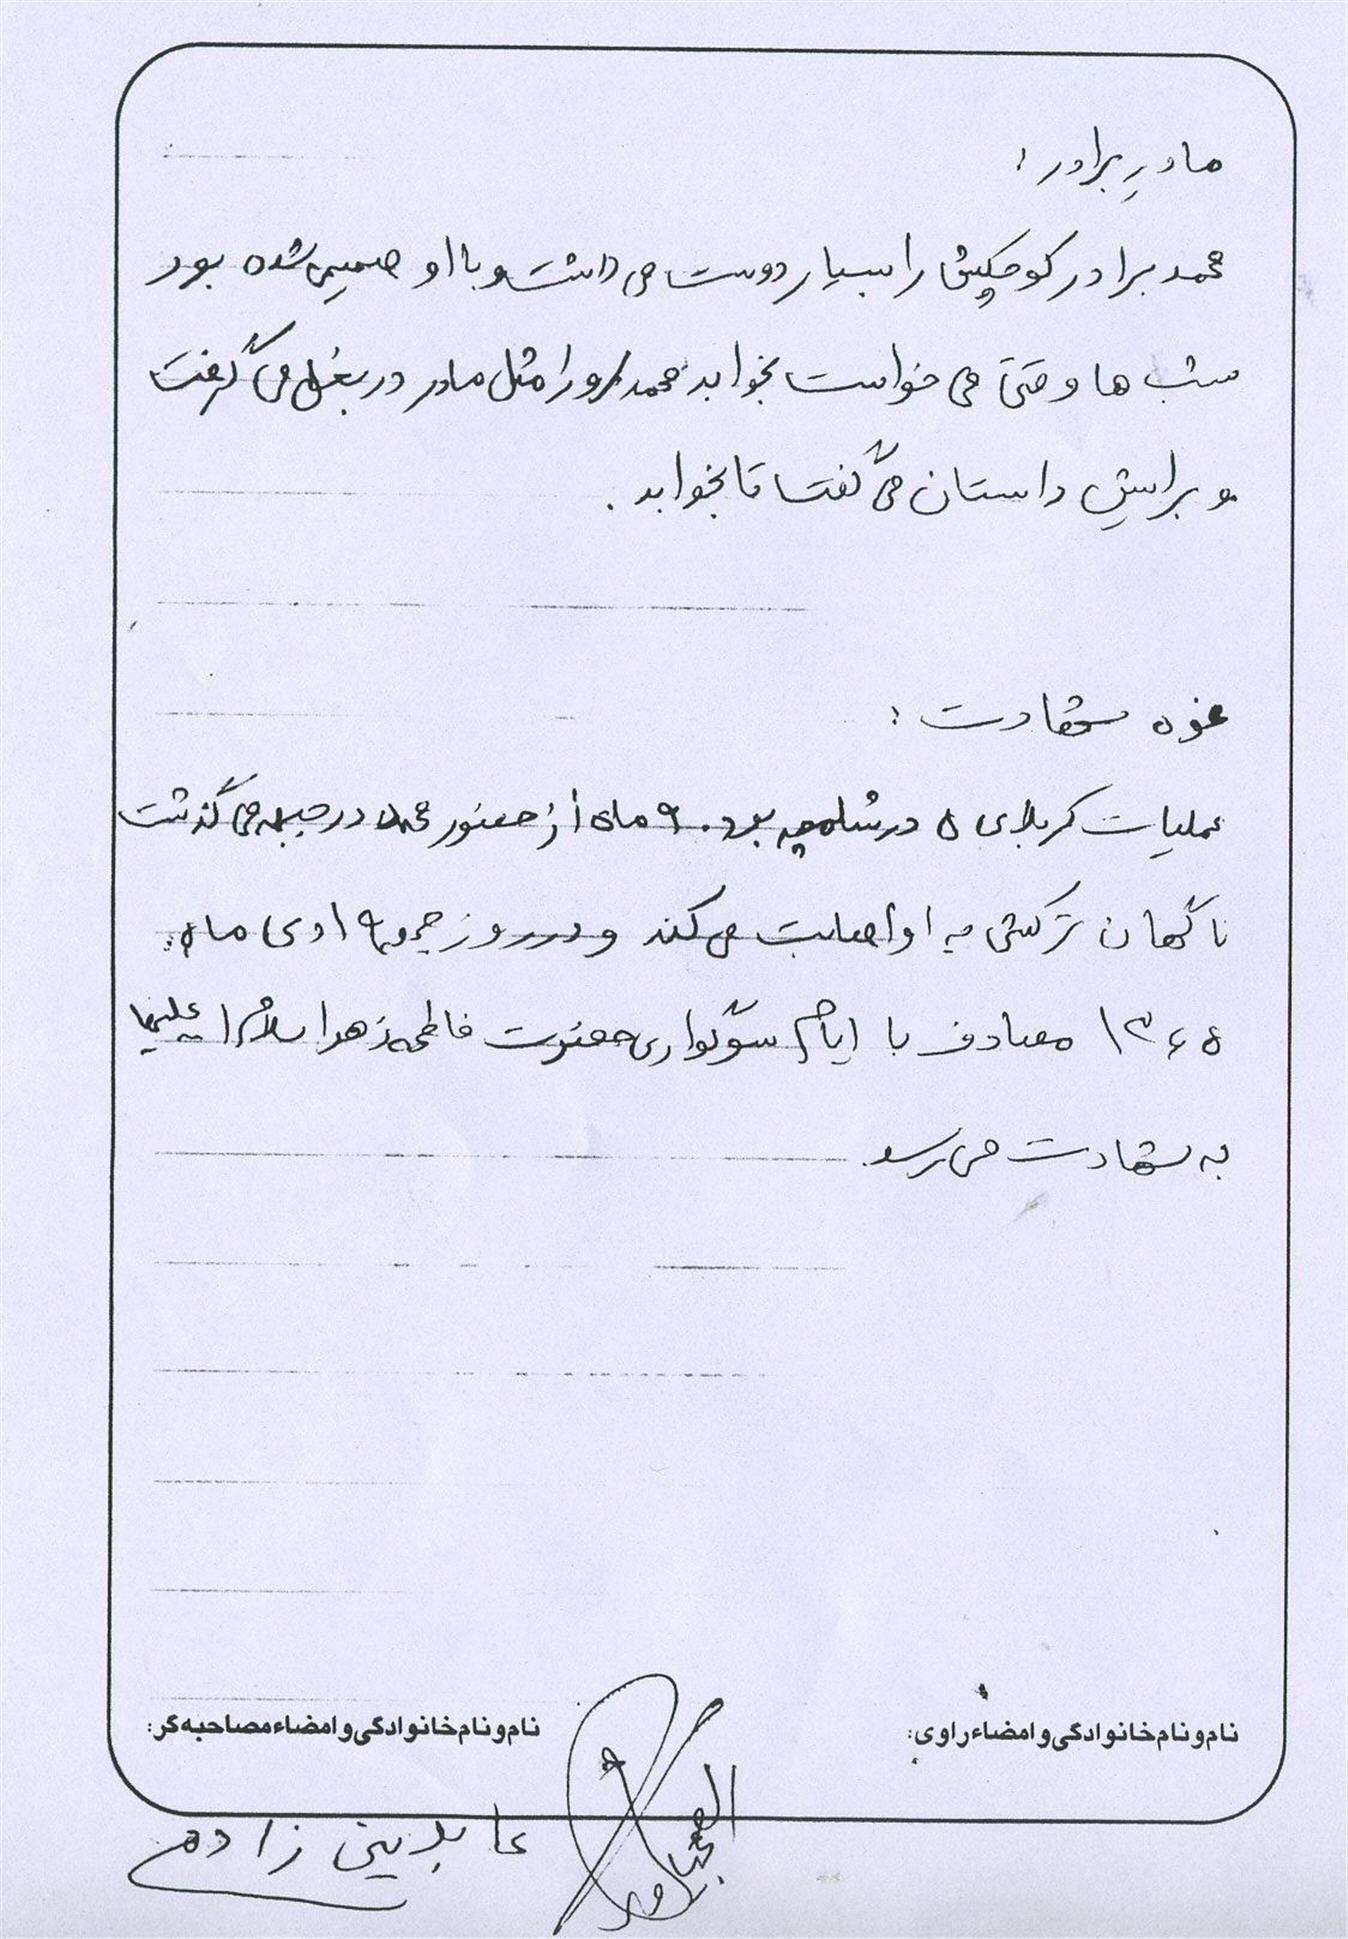 مادرِ برادر :
محمد برادر کوچکش را بسیار دوست می داشت و با او صمیمی شده بود
شب ها وقتی می خواست بخوابد محمد او را مثل مادر در بغل می گرفت
و برایش داستان می گفت تا بخوابد .
نحوه شهادت :
عملیات کربلای ۵ در شلمچه بود . ۹ ماه از حضور محمد در جبهه می گذشت
ناگهان ترکشی به او اصابت می کند و در روز جمعه ۱۹ دی ماه
۱۳۶۵ مصادف با ایام سوگواری حضرت فاطمه زهرا سلام ا علیها
به شهادت می رسد
نام و نام خانوادگی و امضاء راوی:
نام و نام خانوادگی و امضاء مصاحبه گر:
عابدینی زاده